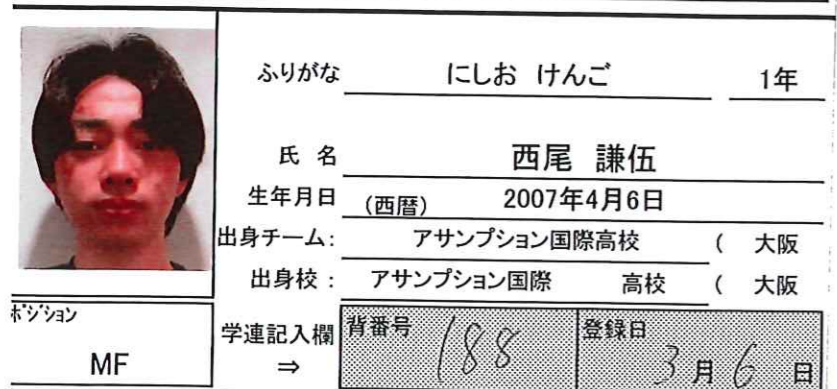 ふりがな にしお けんご 1年
氏 名 西尾 謙伍
生年月日 (西暦) 2007年4月6日
出身チーム: アサンプション国際高校 ( 大阪
出身校 : アサンプション国際 高校 ( 大阪
ポジション
MF
学連記入欄 ⇒ 背番号 188 登録日 3月6日